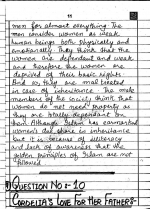 11
men for almost everything. The
men consider women as weak
human beings both physically and
emotionally. They think that the
women are dependent and weak
and therefore the women are
deprived of their basic rights.
And so, they are mistreated
in case of inheritance. The male
members of the society think that
women do not "need" property as
they are totally dependant on
them. Although Islam has commanded
women's due share in inheritance
but it is because of illiteracy
and lack of awareness that the
golden principles of Islam are not
followed.
QUESTION NO :- 10
CORDELIA'S LOVE FOR HER FATHER:-